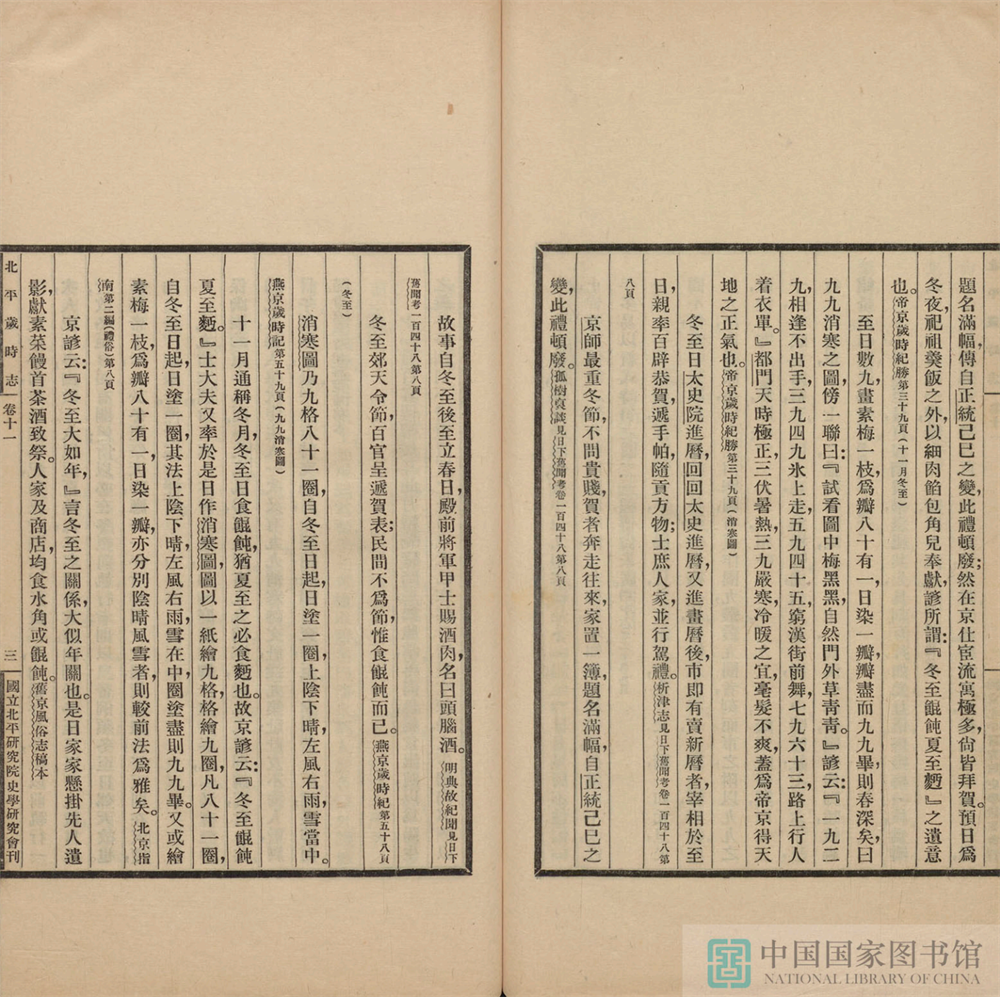 題名滿幅,傳自正統己巳之變,此禮頓廢;然在京仕宦流寓極多,尙皆拜賀。預日爲
冬夜,祀祖羹飯之外,以細肉餡包角兒奉獻,諺所謂:『冬至餛飩夏至麪』之遺意
也。帝京歲時紀勝第三十九頁(十一月冬至)
至日數九,畫素梅一枝,爲瓣八十有一,日染一瓣,瓣盡而九九畢,則春深矣,曰
九九消寒之圖,傍一聯:曰:『試看圖中梅黑黑,自然門外草靑靑。』諺云:『一九二
九,相逢不出手;三九四九,氷上走;五九四十五,窮漢街前舞;七九六十三,路上行人
着衣單。』都門天時極正:三伏暑熱,三九嚴寒,冷暖之宜,毫髮不爽,蓋爲帝京得天
地之正氣也。帝京歲時紀勝第三十九頁(消寒圖)
冬至日太史院進曆,回回太史進曆,又進畫曆後,市即有賣新曆者,宰相於至
日親率百辟恭賀,遞手帕,隨貢方物;士庶人家,並行賀禮。析津志見日下舊聞考卷一百四十八第
八頁
京師最重冬節,不問貴賤,賀者奔走往來,家置一簿,題名滿幅,自正統己巳之
變,此禮頓廢。孤樹裒談見日下舊聞考卷一百四十八第八頁
故事自冬至後至立春日,殿前將軍甲士賜酒肉,名曰頭腦酒。明典故紀聞見日下
舊聞考一百四十八第八頁
冬至郊天令節,百官呈遞賀表;民間不爲節,惟食餛飩而已。燕京歲時紀第五十八頁
(冬至)
消寒圖乃九格八十一圈,自冬至日起,日塗一圈,上陰下晴,左風右雨,雪當中。
燕京歲時記第五十九頁(九九消寒圖)
十一月通稱冬月,冬至日食餛飩,猶夏至之必食麪也。故京諺云:『冬至餛飩
夏至麪。』士大夫又率於是日作消寒圖,圖以一紙繪九格,格繪九圈,凡八十一圈,
自冬至日起,日塗一圈,其法上陰下晴,左風右雨,雪在中,圈塗盡則九九畢。又或繪
素梅一枝,爲瓣八十有一,日染一瓣,亦分別陰晴風雪者,則較前法爲雅矣。北京指
南第二編(禮俗)第八頁
京諺云:『冬至大如年,』言冬至之關係,大似年關也。是日家家懸掛先人遺
影,獻素菜饅首茶酒致祭。人家及商店,均食水角或餛飩。舊京風俗志稿本
北平歲時志 卷十一 三 國立北平研究院史學研究會刊
中国国家图书馆
NATIONAL LIBRARY OF CHINA